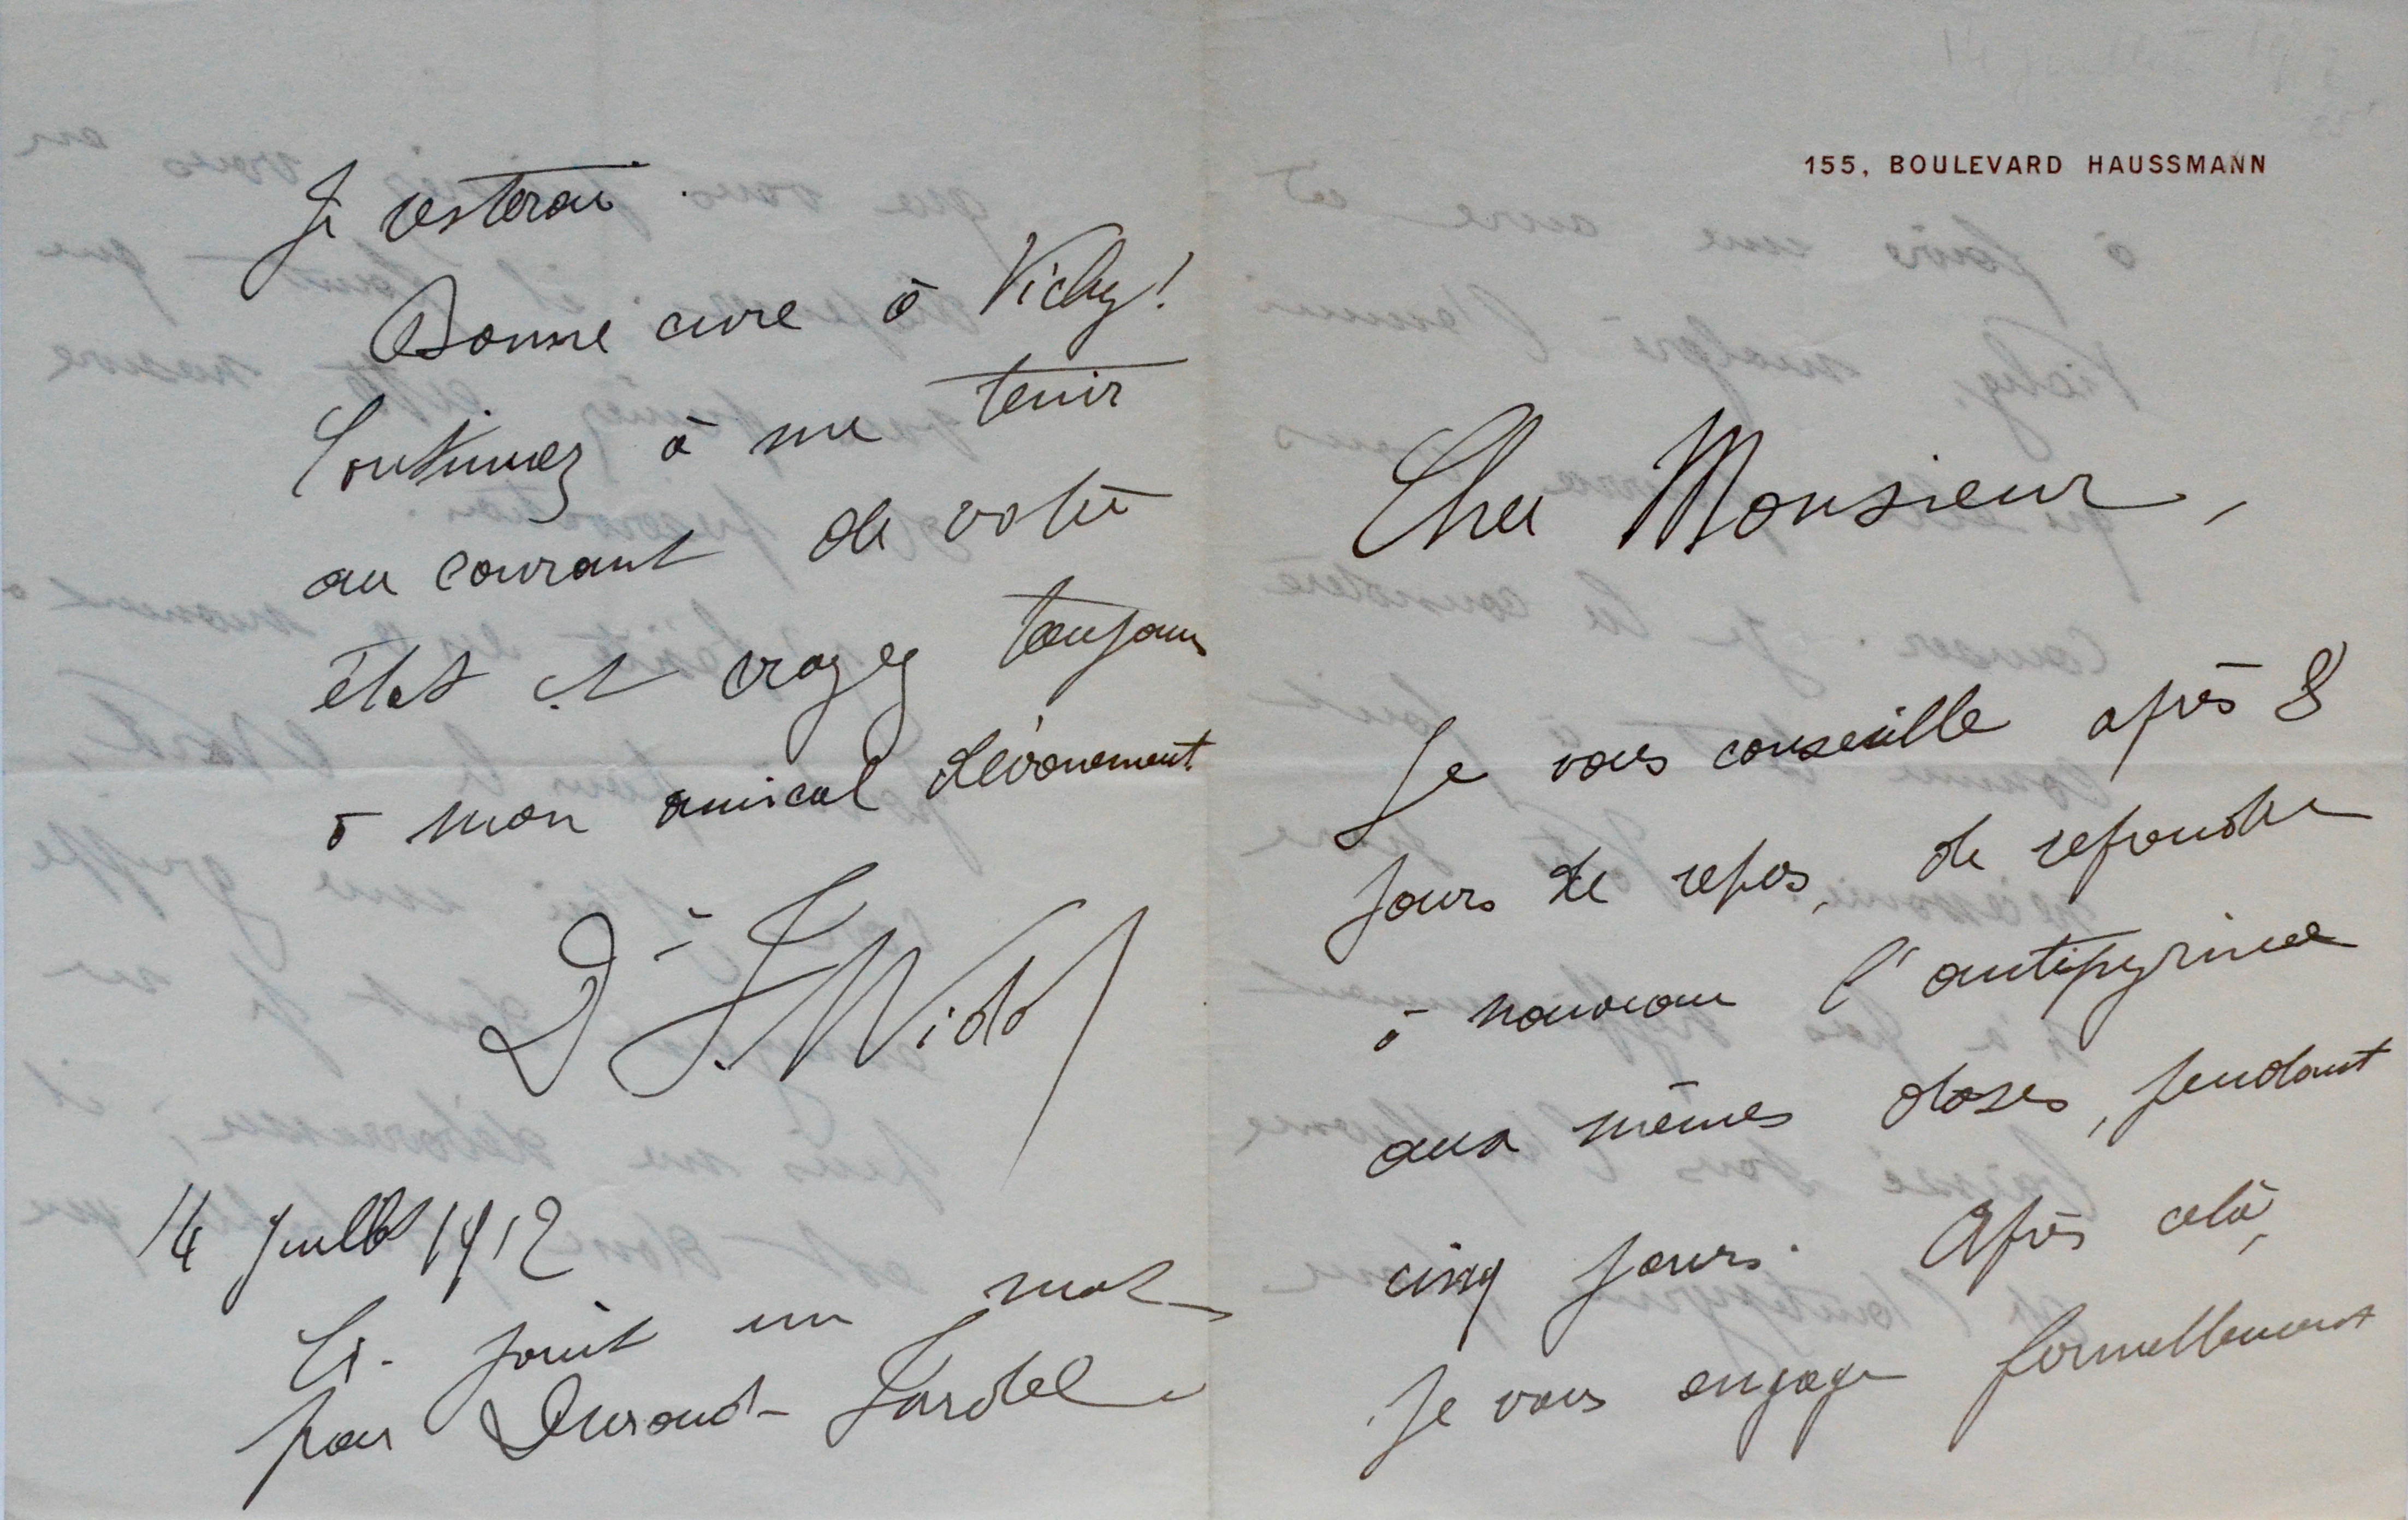 155, BOULEVARD HAUSSMANN
Cher Monsieur,
Je vous conseille après 8
jours de repos, de reprendre
à nouveau l'antipyrine
aux mêmes doses, pendant
cinq jours. Après celà,
je vous engage formellement
Je resterai.
Bonne cure à Vichy!
Continuez à me tenir
au courant de votre
état et croyez toujours
à mon amical dévouement.
Dr F. Widal
14 Juillet 1912
Ci-joint un mot
pour Durand-Fardel